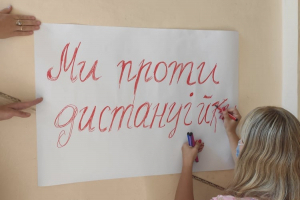 Ми проти
дистануійк